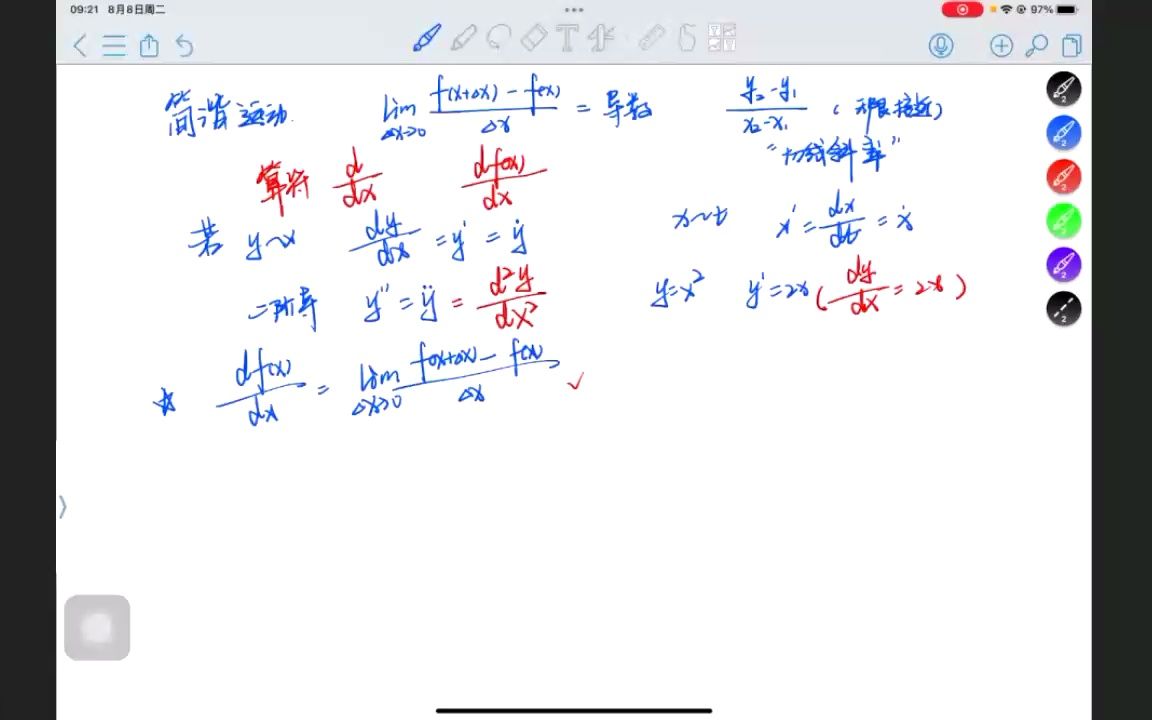 09:21 8月8日周二
97%
简谐运动. lim Δx→0 f(x+Δx) - f(x) / Δx = 导数 y₂-y₁ / x₂-x₁ (无限接近)
"切线斜率"
算符 d/dx df(x)/dx
若 y~x dy/dx = y' = ẏ x~t x' = dx/dt = ẋ
二阶导 y'' = ÿ = d²y/dx² y=x² y'=2x (dy/dx = 2x)
☆ df(x)/dx = lim Δx→0 f(x+Δx) - f(x) / Δx ✓